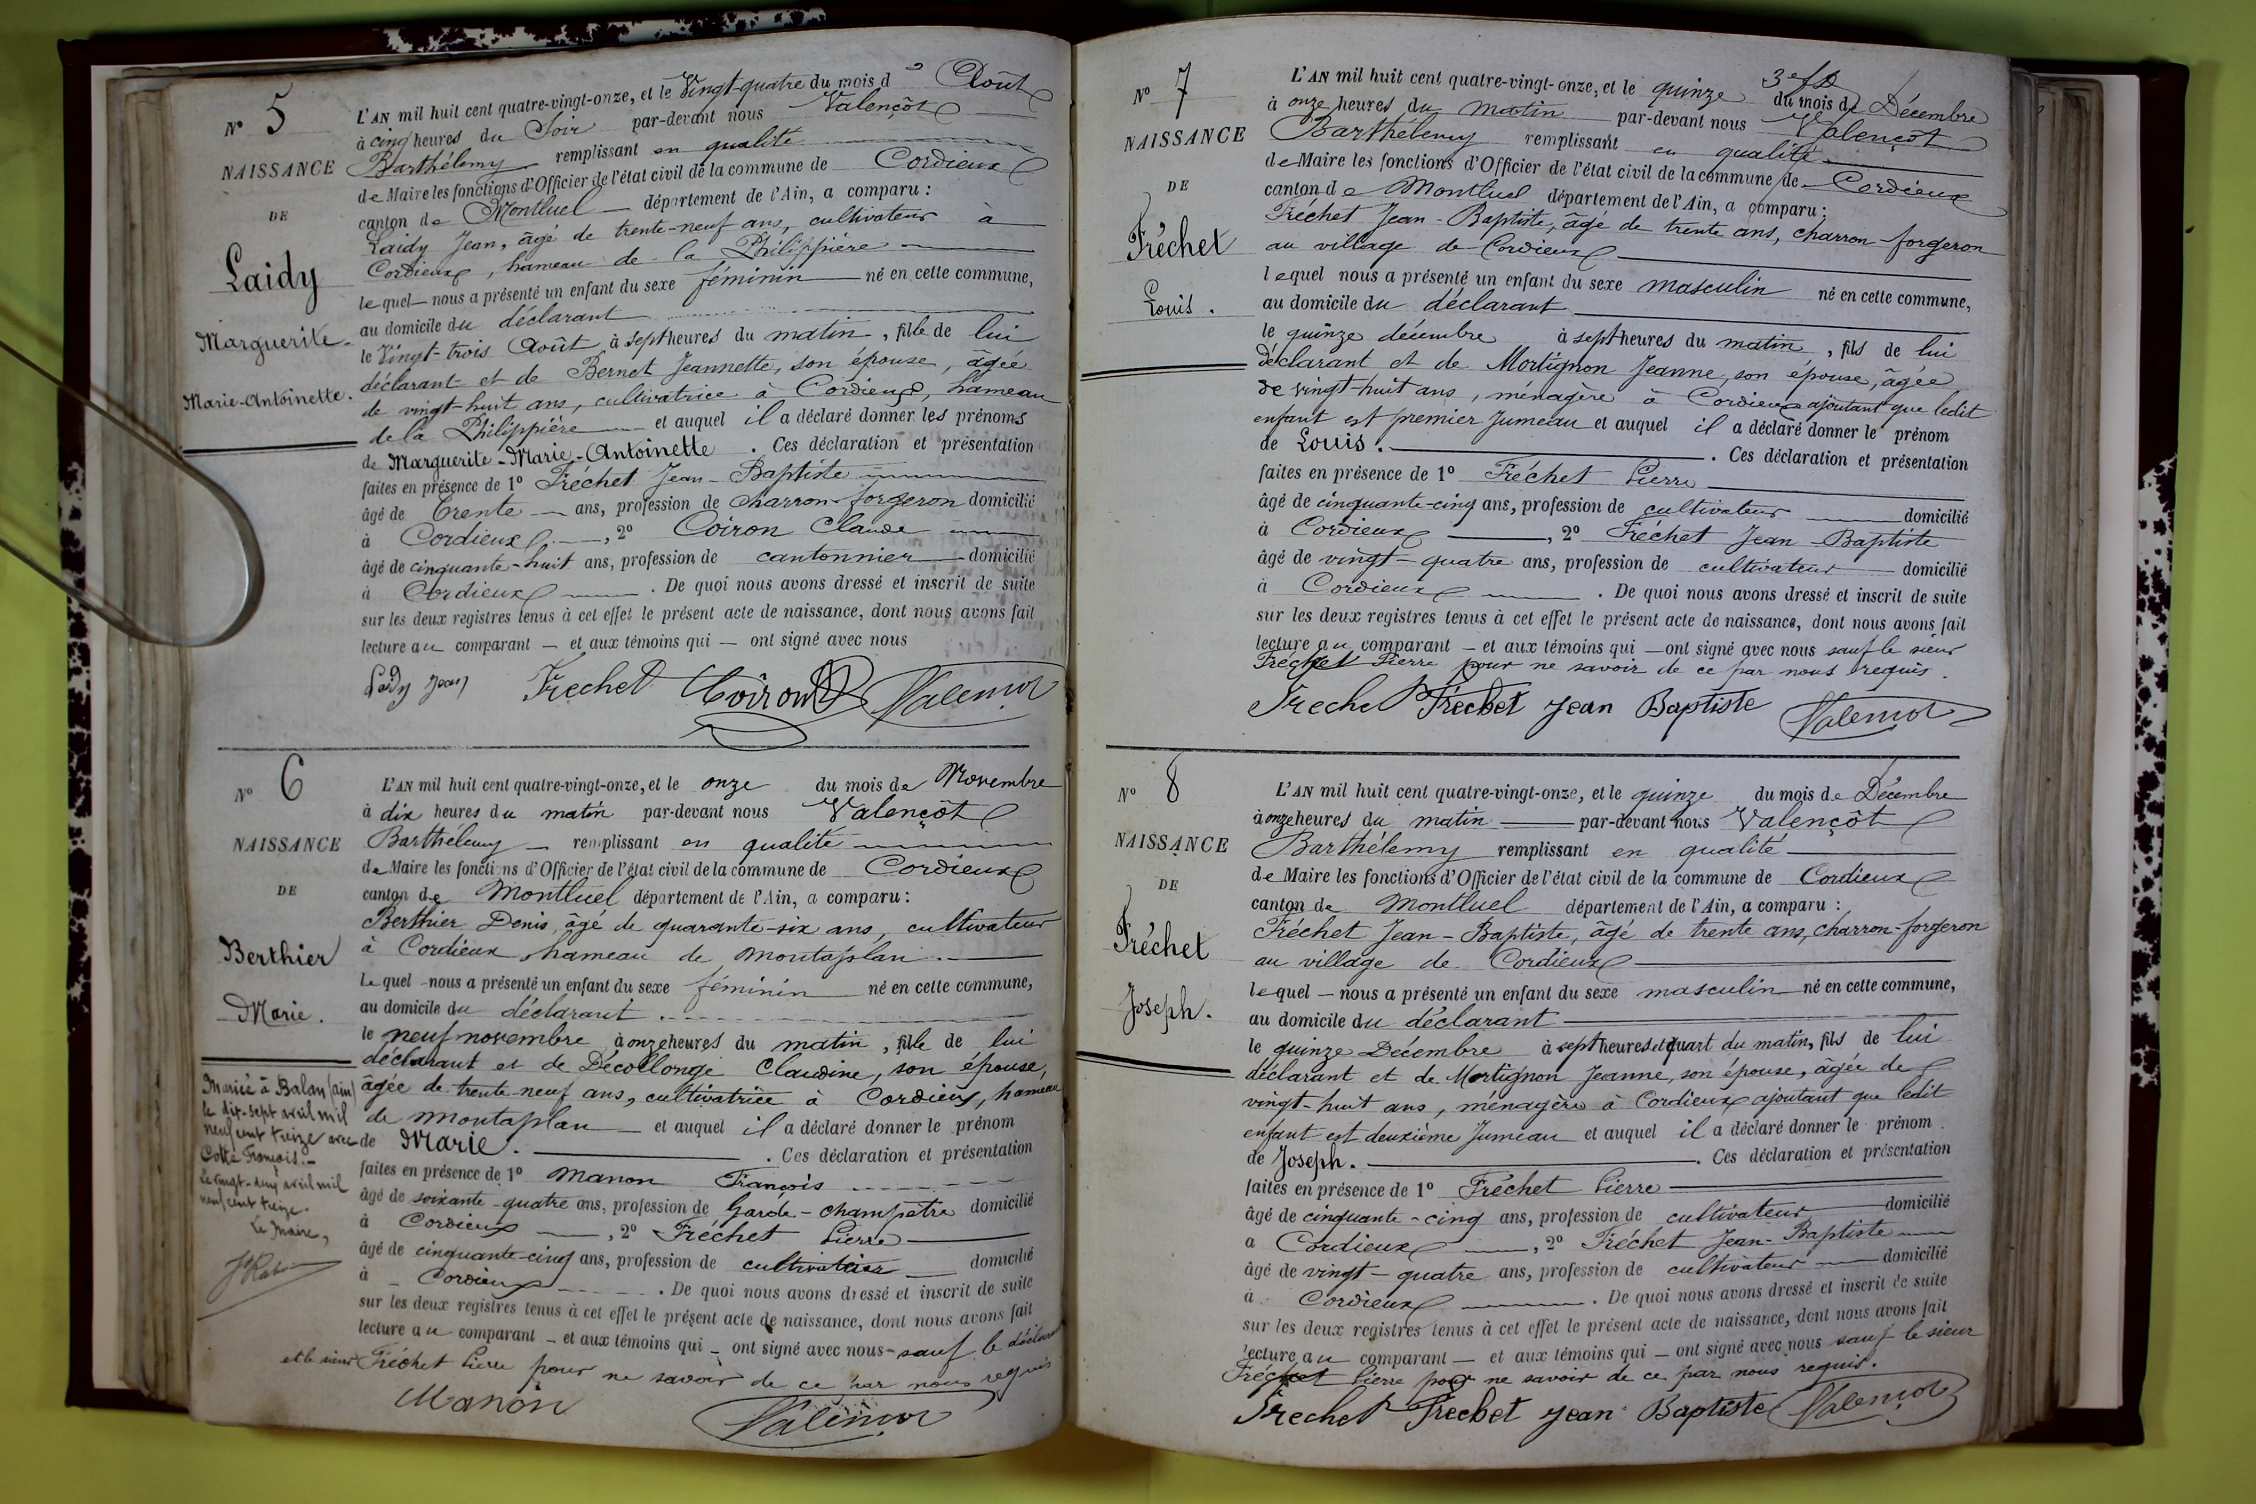 N° 5
NAISSANCE
DE
Laidy
Marguerite-
Marie-Antoinette.
L'AN mil huit cent quatre-vingt-onze, et le Vingt-quatre du mois d Août
à cinq heures du Soir par-devant nous Valençôt
Barthélemy remplissant en qualité
de Maire les fonctions d'Officier de l'état civil de la commune de Cordieux
canton de Montluel département de l'Ain, a comparu :
Laidy Jean, âgé de trente-neuf ans, cultivateur à
Cordieux, hameau de la Philippière
lequel nous a présenté un enfant du sexe féminin né en cette commune,
au domicile du déclarant
le Vingt-trois Août à sept heures du matin, fille de lui
déclarant et de Bernet Jeannette, son épouse, âgée
de vingt-huit ans, cultivatrice à Cordieux, hameau
de la Philippière et auquel il a déclaré donner les prénoms
de Marguerite-Marie-Antoinette. Ces déclaration et présentation
faites en présence de 1° Fréchet Jean-Baptiste
âgé de trente ans, profession de charron-forgeron domicilié
à Cordieux, 2° Coiron Claude
âgé de cinquante-huit ans, profession de cantonnier domicilié
à Cordieux. De quoi nous avons dressé et inscrit de suite
sur les deux registres tenus à cet effet le présent acte de naissance, dont nous avons fait
lecture au comparant — et aux témoins qui — ont signé avec nous
Laidy Jean Frechet Coiron Valençot
N° 6
NAISSANCE
DE
Berthier
Marie.
L'AN mil huit cent quatre-vingt-onze, et le onze du mois de Novembre
à dix heures du matin par-devant nous Valençôt
Barthélemy — remplissant en qualité
de Maire les fonctions d'Officier de l'état civil de la commune de Cordieux
canton de Montluel département de l'Ain, a comparu :
Berthier Denis, âgé de quarante-six ans, cultivateur
à Cordieux hameau de Montaplan.
lequel nous a présenté un enfant du sexe féminin né en cette commune,
au domicile du déclarant.
le neuf novembre à onze heures du matin, fille de lui
déclarant et de Décollonge Claudine, son épouse,
âgée de trente-neuf ans, cultivatrice à Cordieux, hameau
de Montaplan et auquel il a déclaré donner le prénom
de Marie. Ces déclaration et présentation
faites en présence de 1° Manon François
âgé de soixante-quatre ans, profession de Garde-champêtre domicilié
à Cordieux, 2° Fréchet Pierre
âgé de cinquante-cinq ans, profession de cultivateur domicilié
à Cordieux. De quoi nous avons dressé et inscrit de suite
sur les deux registres tenus à cet effet le présent acte de naissance, dont nous avons fait
lecture au comparant — et aux témoins qui — ont signé avec nous — sauf le déclarant
et le sieur Fréchet Pierre pour ne savoir de ce par nous requis
Manon Valençot
Mariée à Balan (Ain)
le dix-sept avril mil
neuf cent treize avec
Cotte François.—
Le vingt-cinq avril mil
neuf cent treize.
Le Maire,
N° 7
NAISSANCE
DE
Fréchet
Louis.
L'AN mil huit cent quatre-vingt-onze, et le quinze du mois de Décembre
à onze heures du matin par-devant nous Valençôt
Barthélemy remplissant en qualité
de Maire les fonctions d'Officier de l'état civil de la commune de Cordieux
canton de Montluel département de l'Ain, a comparu :
Fréchet Jean-Baptiste, âgé de trente ans, charron-forgeron
au village de Cordieux
lequel nous a présenté un enfant du sexe masculin né en cette commune,
au domicile du déclarant
le quinze décembre à sept heures du matin, fils de lui
déclarant et de Mortignon Jeanne, son épouse, âgée
de vingt-huit ans, ménagère à Cordieux ajoutant que ledit
enfant est premier Jumeau et auquel il a déclaré donner le prénom
de Louis. Ces déclaration et présentation
faites en présence de 1° Fréchet Pierre
âgé de cinquante-cinq ans, profession de cultivateur domicilié
à Cordieux, 2° Fréchet Jean-Baptiste
âgé de vingt-quatre ans, profession de cultivateur domicilié
à Cordieux. De quoi nous avons dressé et inscrit de suite
sur les deux registres tenus à cet effet le présent acte de naissance, dont nous avons fait
lecture au comparant — et aux témoins qui — ont signé avec nous sauf le sieur
Fréchet Pierre pour ne savoir de ce par nous requis.
Frechet Fréchet Jean Baptiste Valençot
N° 8
NAISSANCE
DE
Fréchet
Joseph.
L'AN mil huit cent quatre-vingt-onze, et le quinze du mois de Décembre
à onze heures du matin par-devant nous Valençôt
Barthélemy remplissant en qualité
de Maire les fonctions d'Officier de l'état civil de la commune de Cordieux
canton de Montluel département de l'Ain, a comparu :
Fréchet Jean-Baptiste, âgé de trente ans, charron-forgeron
au village de Cordieux
lequel — nous a présenté un enfant du sexe masculin né en cette commune,
au domicile du déclarant
le quinze Décembre à sept heures et quart du matin, fils de lui
déclarant et de Mortignon Jeanne, son épouse, âgée de
vingt-huit ans, ménagère à Cordieux ajoutant que ledit
enfant est deuxième Jumeau et auquel il a déclaré donner le prénom
de Joseph. Ces déclaration et présentation
faites en présence de 1° Fréchet Pierre
âgé de cinquante-cinq ans, profession de cultivateur domicilié
à Cordieux, 2° Fréchet Jean-Baptiste
âgé de vingt-quatre ans, profession de cultivateur domicilié
à Cordieux. De quoi nous avons dressé et inscrit de suite
sur les deux registres tenus à cet effet le présent acte de naissance, dont nous avons fait
lecture au comparant — et aux témoins qui — ont signé avec nous sauf le sieur
Fréchet Pierre pour ne savoir de ce par nous requis.
Frechet Fréchet Jean Baptiste Valençot